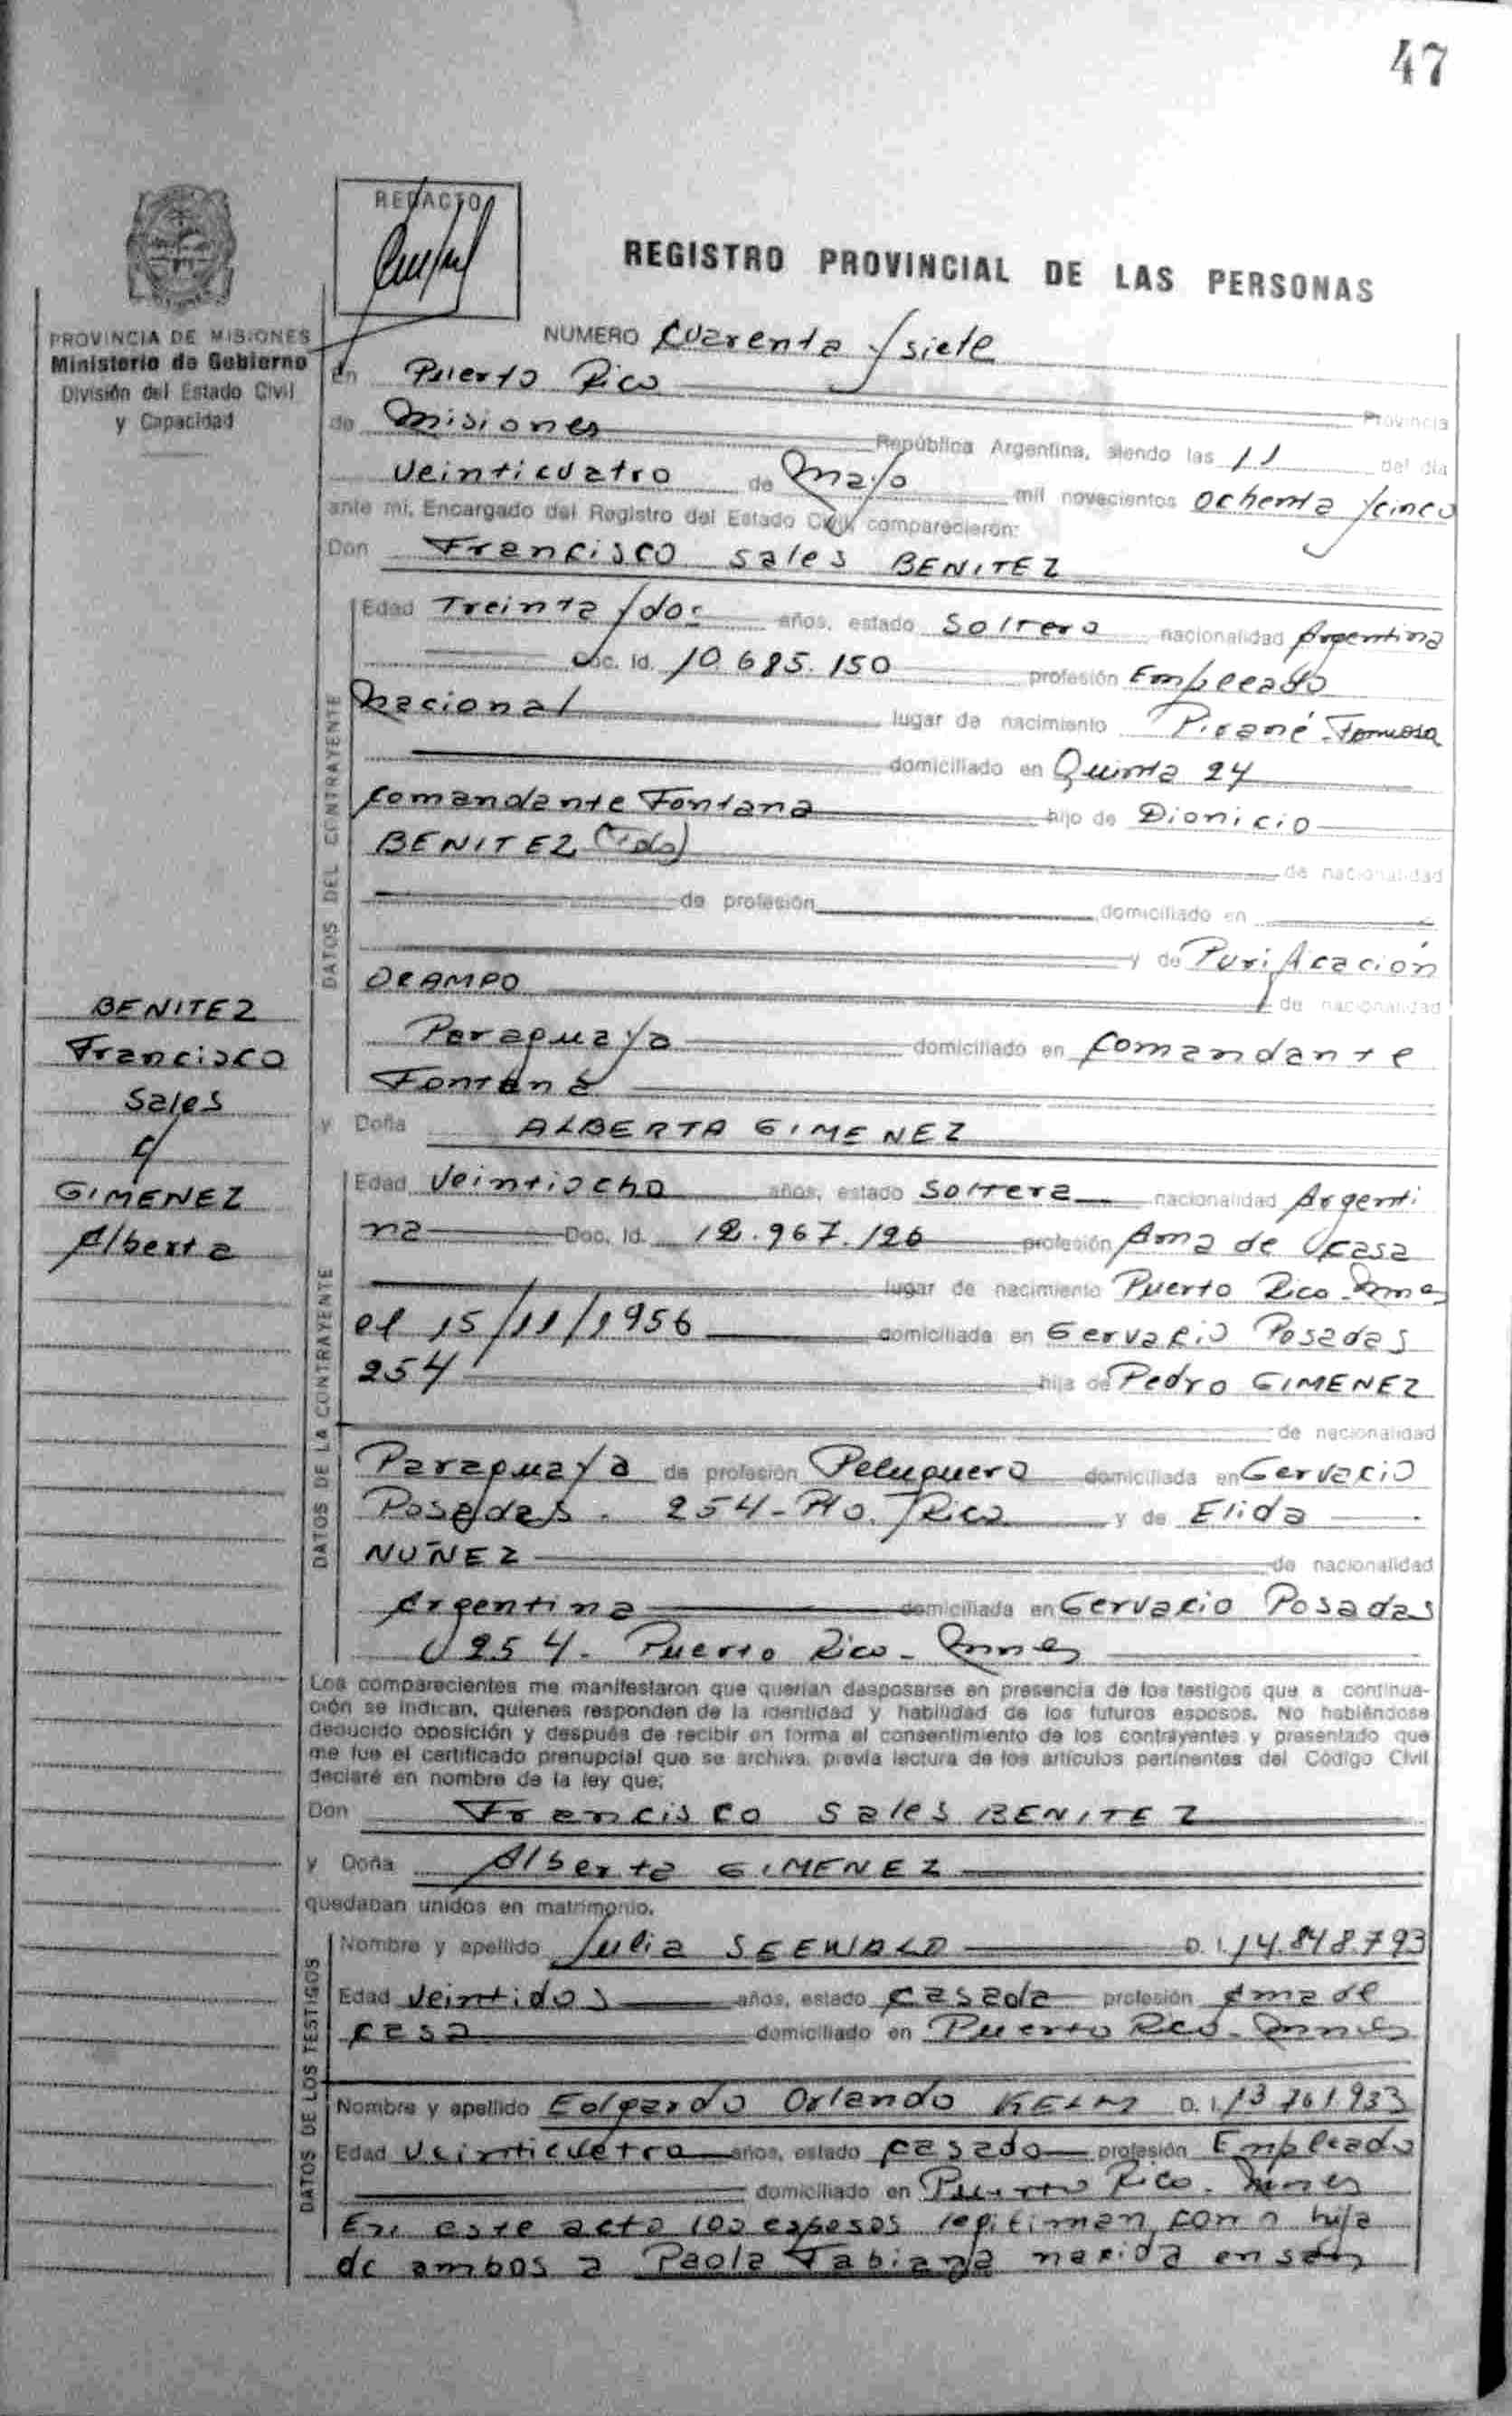 47
REDACTO
REGISTRO PROVINCIAL DE LAS PERSONAS
PROVINCIA DE MISIONES
Ministerio de Gobierno
División del Estado Civil
y Capacidad
NUMERO Cuarenta y siete
En Puerto Rico Provincia
de Misiones República Argentina, siendo las 11 del dia
Veinticuatro de Mayo mil novecientos ochenta y cinco
ante mi, Encargado del Registro del Estado Civil, comparecieron:
Don Francisco Sales BENITEZ
DATOS DEL CONTRAYENTE
Edad Treinta y dos años, estado Soltero nacionalidad Argentina
Doc. Id. 10.685.150 profesión Empleado
Nacional lugar de nacimiento Pirané-Formosa
domiciliado en Quinta 24
Comandante Fontana hijo de Dionicio
BENITEZ (fdo) de nacionalidad
de profesión domiciliado en
y de Purificación
OCAMPO de nacionalidad
Paraguaya domiciliado en Comandante
Fontana
BENITEZ
Francisco
Sales
c/
GIMENEZ
Alberta
y Doña ALBERTA GIMENEZ
DATOS DE LA CONTRAYENTE
Edad Veintiocho años, estado Soltera nacionalidad Argenti
na Doc. Id. 12.967.126 profesión Ama de Casa
lugar de nacimiento Puerto Rico Mnes
el 15/11/1956 domiciliada en Gervacio Posadas
254 hija de Pedro GIMENEZ
de nacionalidad
Paraguaya de profesión Peluquero domiciliada en Gervacio
Posadas. 254-Pto. Rico y de Elida
NUÑEZ de nacionalidad
Argentina domiciliada en Gervacio Posadas
254. Puerto Rico- Mnes
Los comparecientes me manifestaron que querían desposarse en presencia de los testigos que a continua-
ción se indican, quienes responden de la identidad y habilidad de los futuros esposos. No habiéndose
deducido oposición y después de recibir en forma el consentimiento de los contrayentes y presentado que
me fue el certificado prenupcial que se archiva, previa lectura de los artículos pertinentes del Código Civil
declaré en nombre de la ley que:
Don Francisco Sales BENITEZ
y Doña Alberta GIMENEZ
quedaban unidos en matrimonio.
DATOS DE LOS TESTIGOS
Nombre y apellido Julia SEEWALD D. I. 14.848.793
Edad Veintidos años, estado Casada profesión Ama de
casa domiciliado en Puerto Rco- Mnes
Nombre y apellido Edgardo Orlando KELM D. I. 13.761.933
Edad Veinticuatro años, estado Casado profesión Empleado
domiciliado en Puerto Rico. Mnes
En este acto los esposos legitiman como hija
de ambos a Paola Fabiana nacida en